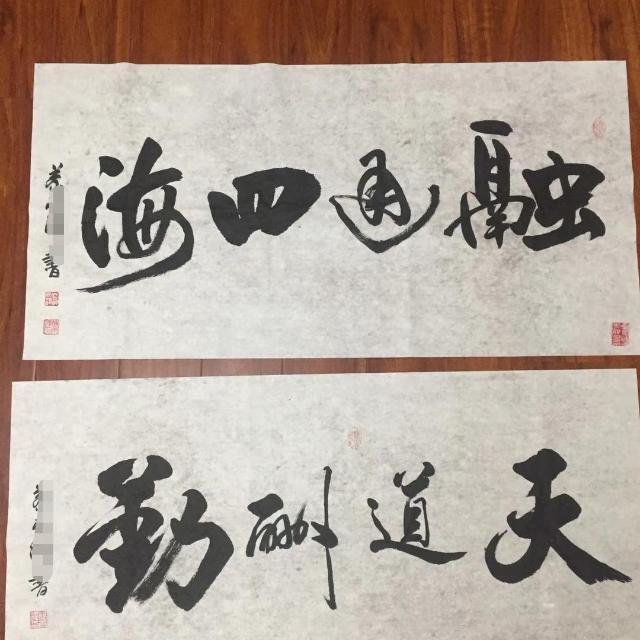 融通四海
天道酬勤